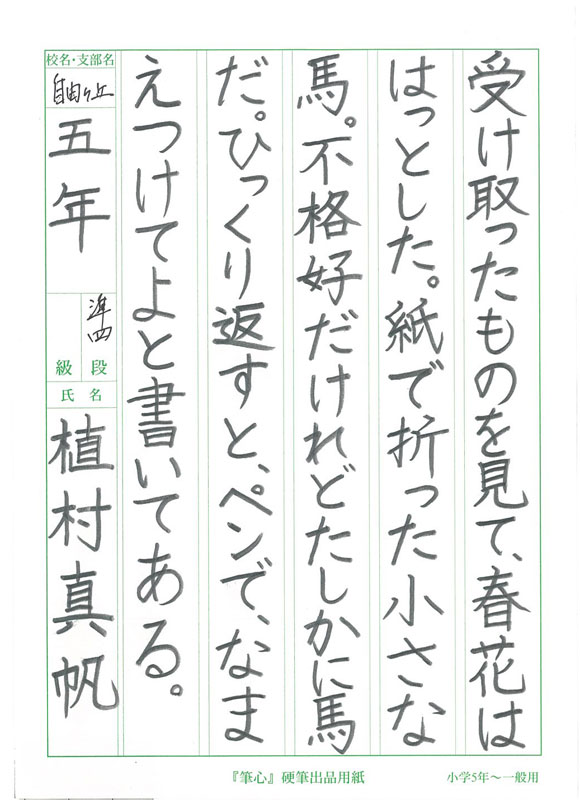 受け取ったものを見て、春花は
はっとした。紙で折った小さな
馬。不格好だけれどたしかに馬
だ。ひっくり返すと、ペンで、なま
えつけてよと書いてある。
校名・支部名
自由ヶ丘
五年
準四
段
級
氏名
植村真帆
『筆心』硬筆出品用紙
小学5年～一般用